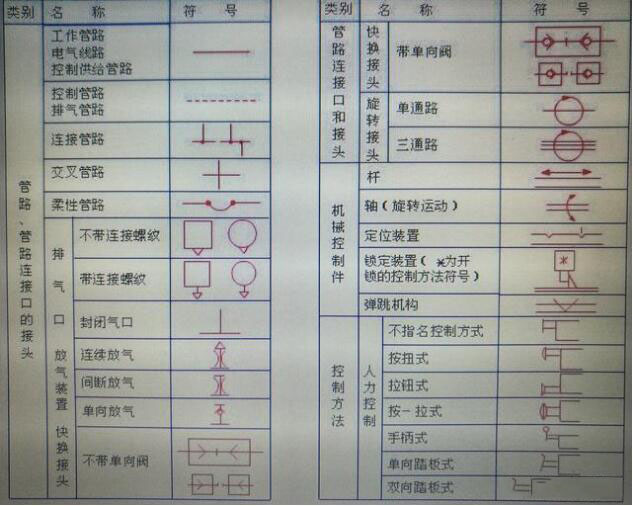 类别 名 称 符 号
工作管路
电气线路
控制供给管路
控制管路
排气管路
连接管路
交叉管路
柔性管路
管路、管路连接口的接头
排气口
不带连接螺纹
带连接螺纹
封闭气口
放气装置
连续放气
间断放气
单向放气
快换接头
不带单向阀
类别 名 称 符 号
管路连接口和接头
快换接头
带单向阀
旋转接头
单通路
三通路
机械控制件
杆
轴(旋转运动)
定位装置
锁定装置(*为开
锁的控制方法符号)
*
弹跳机构
控制方法
人力控制
不指名控制方式
按扭式
拉钮式
按一拉式
手柄式
单向踏板式
双向踏板式